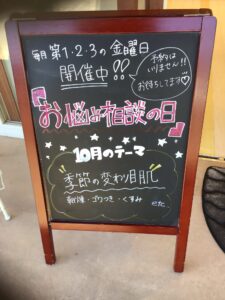 毎月 第1・2・3の金曜日
開催中!!
予約は
いりません!!
お待ちしてます♡
『お悩み相談の日』
10月のテーマ
"季節の変わり目肌"
乾燥・ゴワつき・くすみ etc.